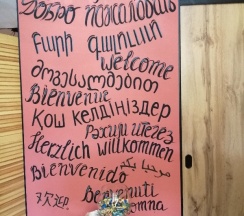 Добро пожаловать
Բարի գալուստ
Welcome
მოგესალმებით
Bienvenue
Қош келдіңіздер
Herzlich willkommen
مرحبا بكم
Bienvenido
Benvenuti